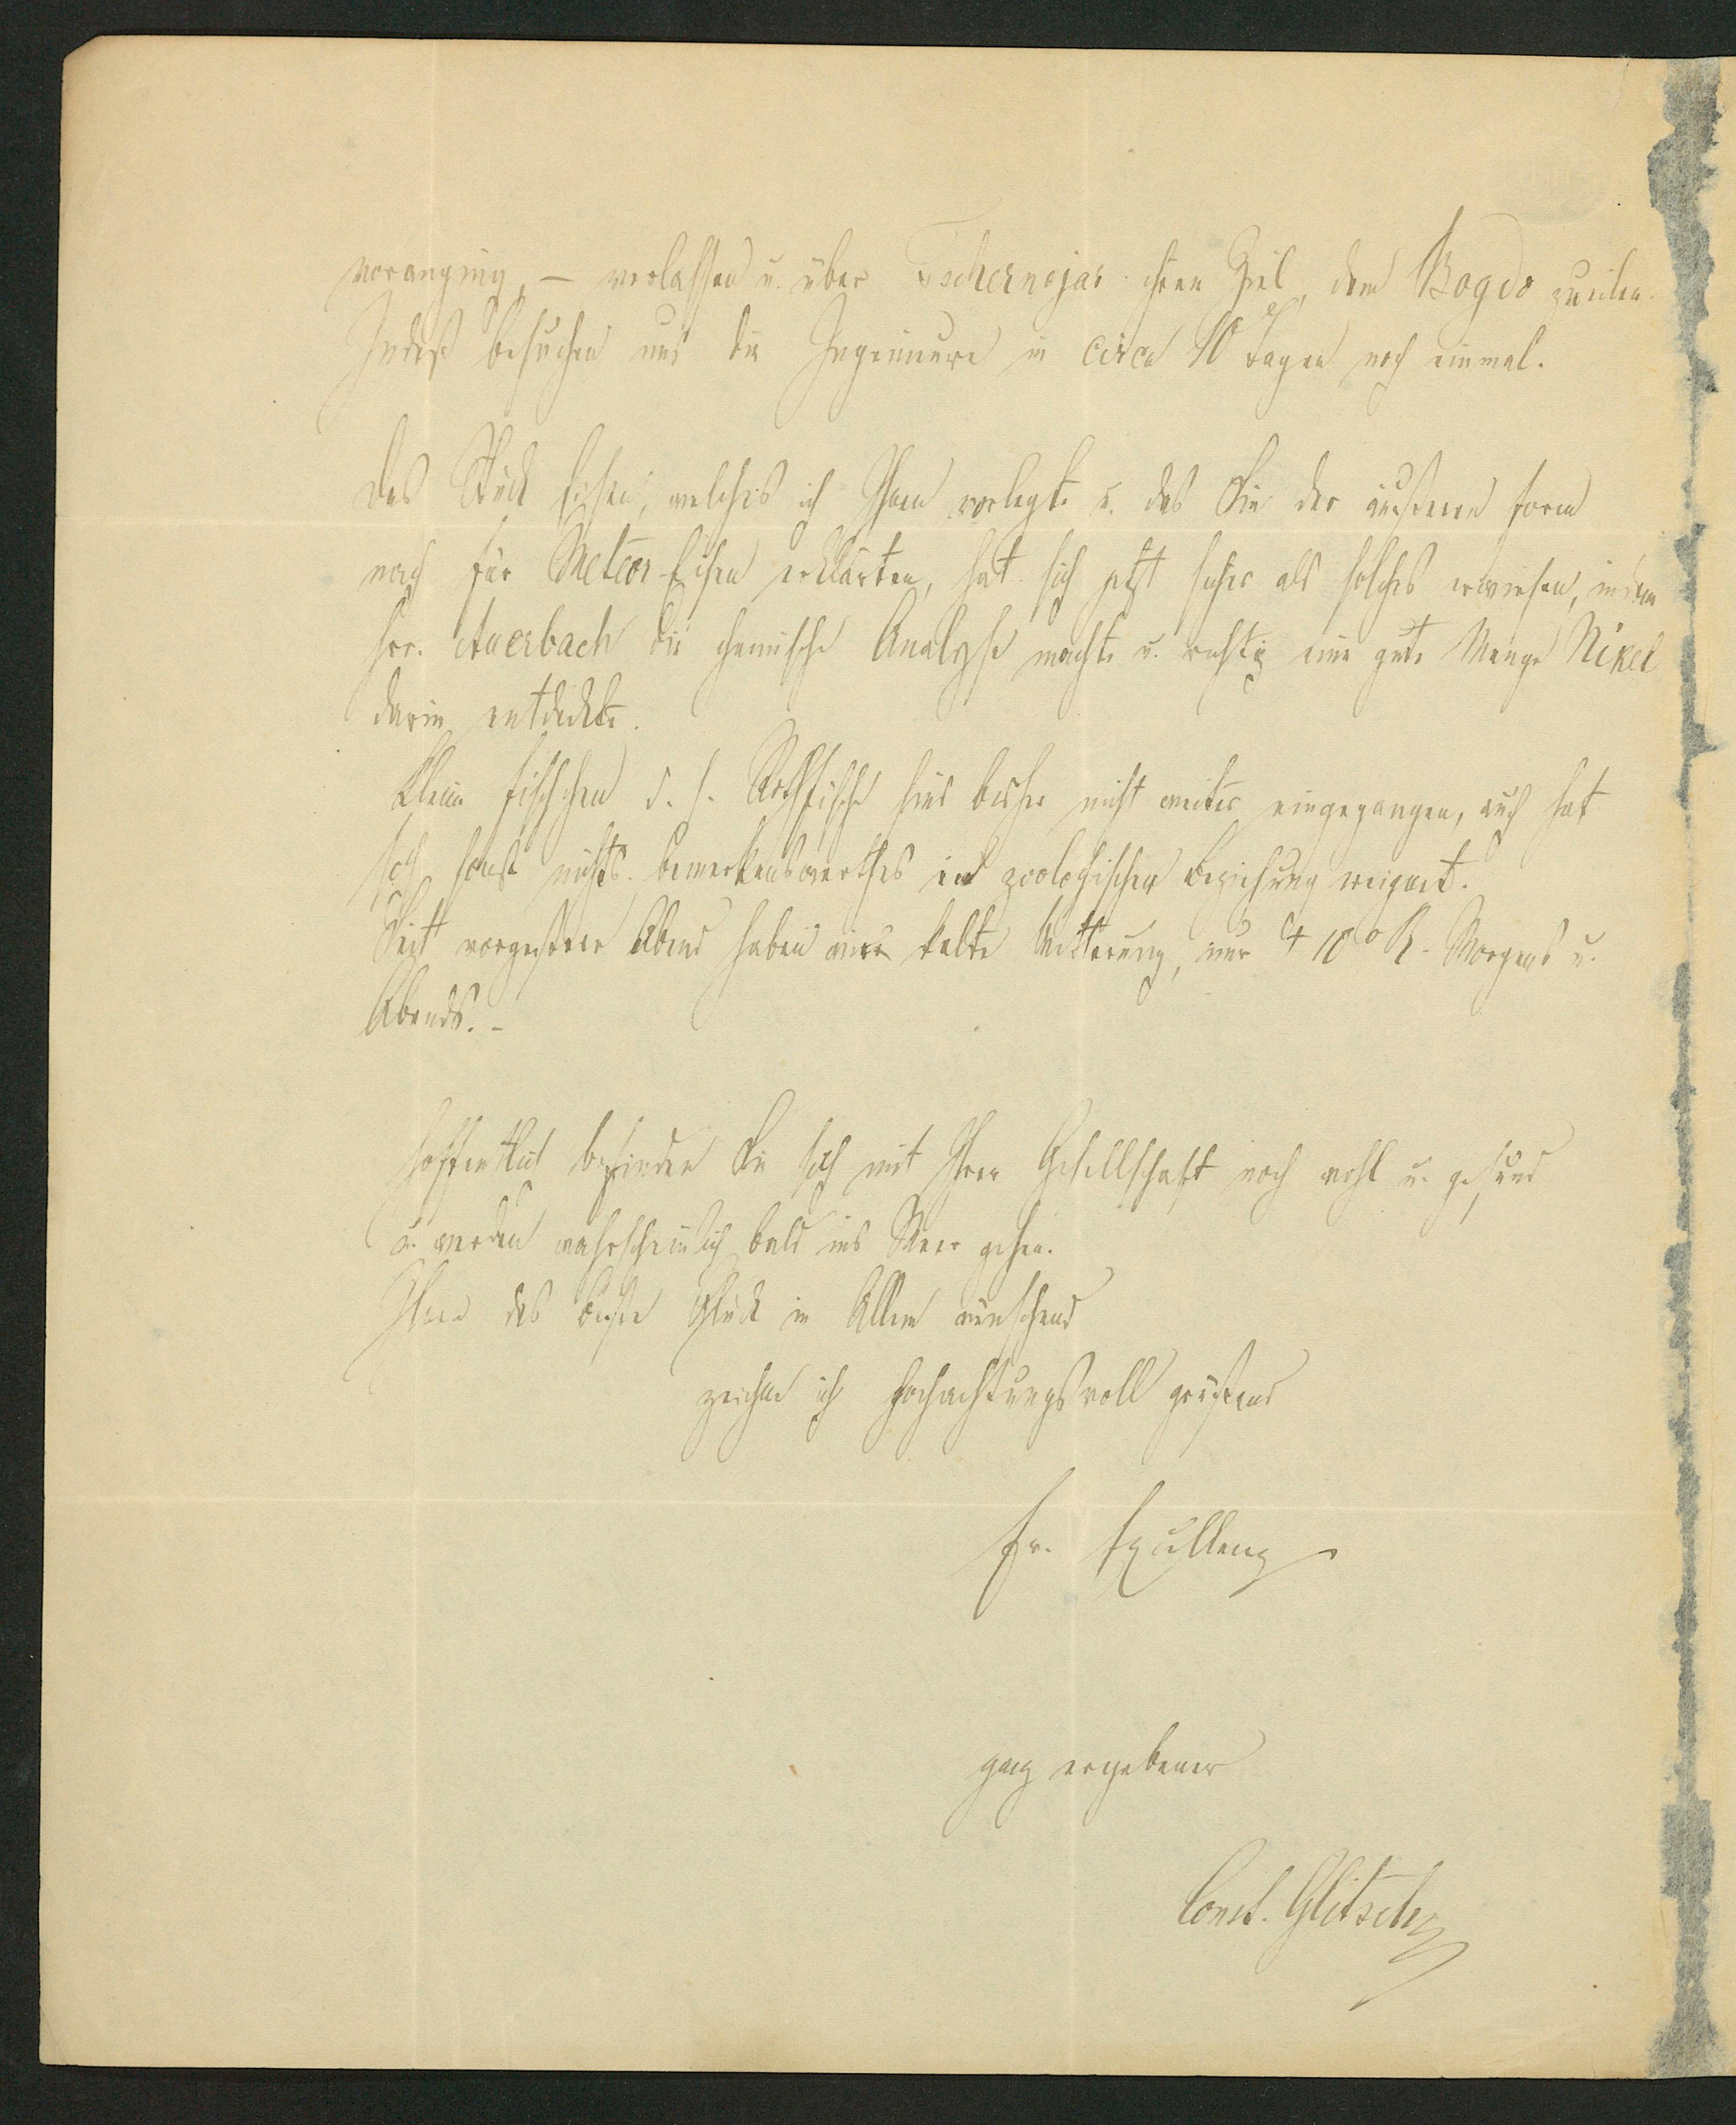 voranging, — verlassen u. über Tschernojar ihrem Ziel, dem Bogdo zueilen.
Indeß besuchen uns die Ingenieure in circa 10 Tagen noch einmal.
Das Stück Eisen, welches ich Ihnen vorlegte u. das Sie der äußeren Form
nach für Meteor-Eisen erklärten, hat sich jetzt sicher als solches erwiesen, indem
Hr. Auerbach die chemische Analyse machte u. richtig eine gute Menge Nikel
darin entdeckte.
Kleine Fischchen d. h. Rothfische sind bisher nicht weiter eingegangen, auch hat
sich sonst nichts bemerkenswerthes in zoologischer Beziehung ereignet.
Seit vorgestern Abend haben wir kalte Witterung, nur + 10° R. Morgens u.
Abends. -
Hoffentlich befinden Sie sich mit Ihrer Gesellschaft noch wohl u. gesund
u. werden wahrscheinlich bald ins Meer gehen.
Ihnen das beste Glück in Allem wünschend
zeichne ich hochachtungsvoll grüßend
Ew.
ganz ergebener
Const. Glitsch